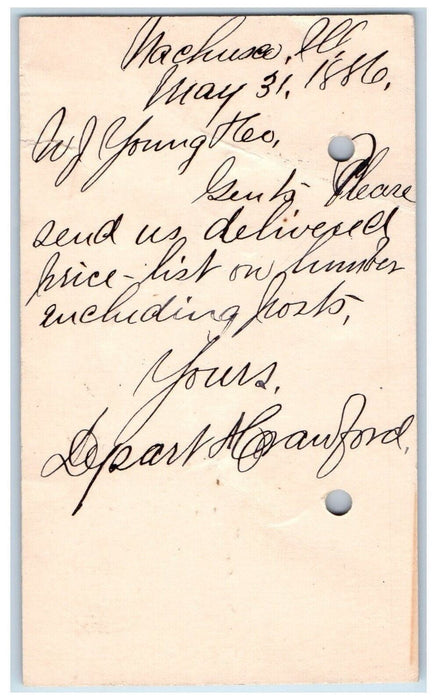 Nachusa, Ill,
May 31, 1886,
W J Young & Co,
Gents Please
send us delivered
price-list on lumber
including posts,
Yours,
Crawford,